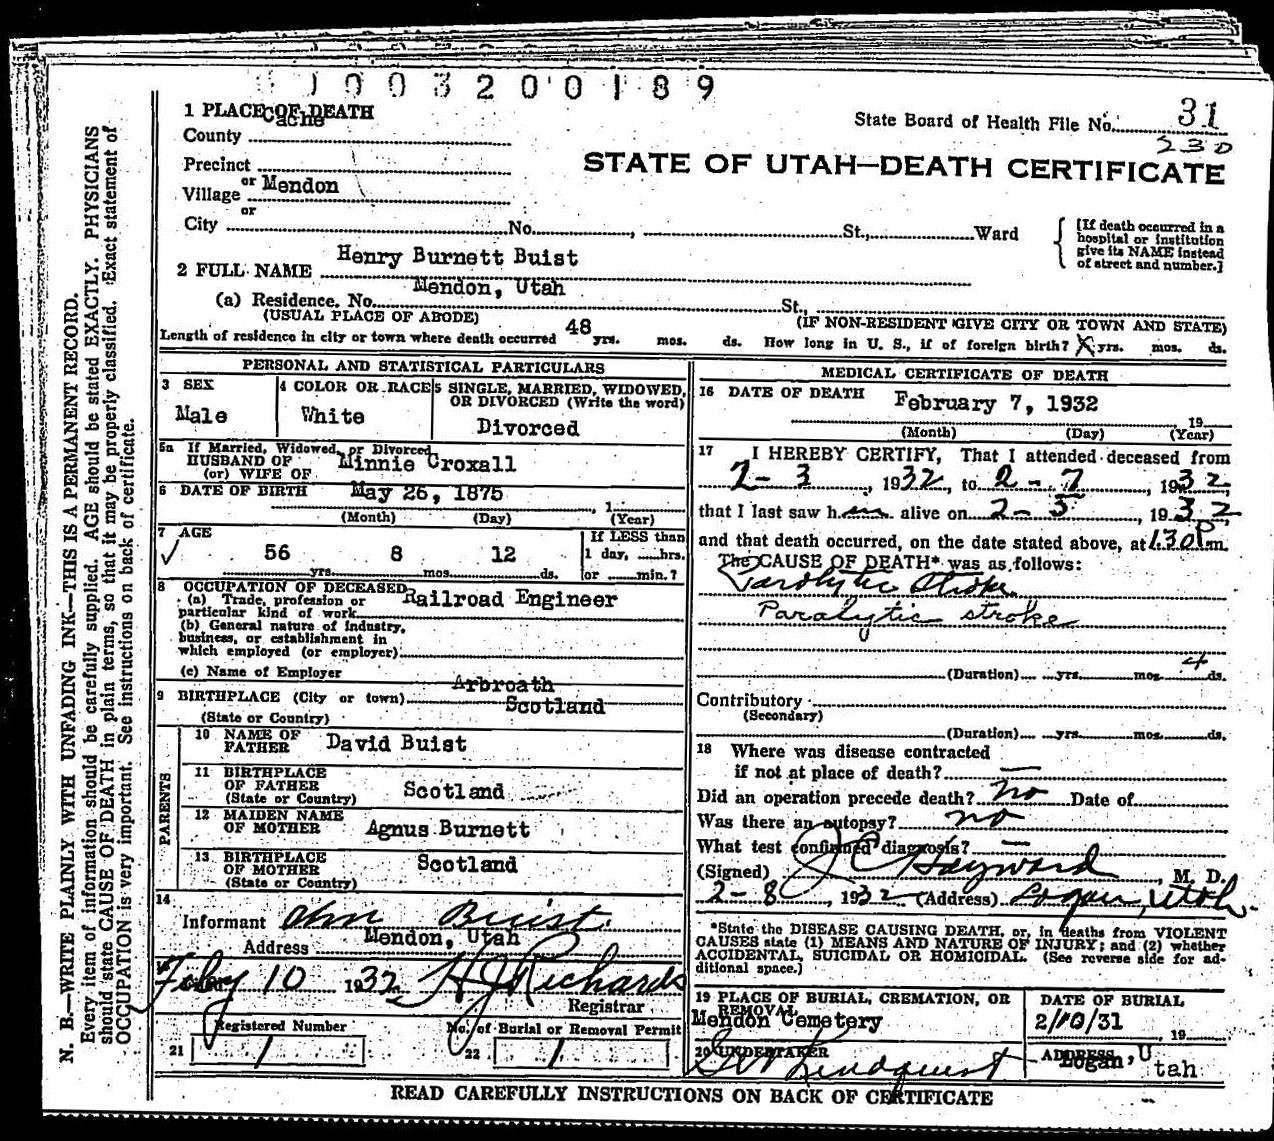 1003200189
1 PLACE OF DEATH
Cache
County
State Board of Health File No. 31
230
Precinct
STATE OF UTAH—DEATH CERTIFICATE
or
Village Mendon
or
City No. , St., Ward
[If death occurred in a
hospital or institution
give its NAME instead
of street and number.]
2 FULL NAME Henry Burnett Buist
(a) Residence. No. Mendon, Utah St.,
(USUAL PLACE OF ABODE) (IF NON-RESIDENT GIVE CITY OR TOWN AND STATE)
Length of residence in city or town where death occurred 48 yrs. mos. ds. How long in U. S., if of foreign birth? X yrs. mos. ds.
PERSONAL AND STATISTICAL PARTICULARS
3 SEX 4 COLOR OR RACE 5 SINGLE, MARRIED, WIDOWED,
OR DIVORCED (Write the word)
Male White Divorced
5a If Married, Widowed, or Divorced
HUSBAND OF Minnie Croxall
(or) WIFE OF
6 DATE OF BIRTH May 26, 1875
, 1
(Month) (Day) (Year)
7 AGE If LESS than
56 8 12 1 day, hrs.
yrs. mos. ds. or min.?
8 OCCUPATION OF DECEASED
(a) Trade, profession or Railroad Engineer
particular kind of work
(b) General nature of industry,
business, or establishment in
which employed (or employer)
(c) Name of Employer
Arbroath
9 BIRTHPLACE (City or town) Scotland
(State or Country)
PARENTS
10 NAME OF
FATHER David Buist
11 BIRTHPLACE
OF FATHER Scotland
(State or Country)
12 MAIDEN NAME
OF MOTHER Agnus Burnett
13 BIRTHPLACE Scotland
OF MOTHER
(State or Country)
14
Informant Buist
Address Mendon, Utah
Feby 10 1932 H J Richards
Registrar
Registered Number No. of Burial or Removal Permit
21 1 22 1
MEDICAL CERTIFICATE OF DEATH
16 DATE OF DEATH February 7, 1932
19
(Month) (Day) (Year)
17 I HEREBY CERTIFY, That I attended deceased from
2-3, 1932, to 2-7, 1932,
that I last saw him alive on 2-5, 1932
and that death occurred, on the date stated above, at 1.30 Pm.
The CAUSE OF DEATH* was as follows:
Paralytic Stroke
Paralytic stroke
(Duration) yrs. mos. 4 ds.
Contributory
(Secondary)
(Duration) yrs. mos. ds.
18 Where was disease contracted
if not at place of death? —
Did an operation precede death? no Date of
Was there an autopsy? no
What test confirmed diagnosis? —
(Signed) J C Hayward, M. D.
2-8, 1932 (Address) Logan, Utah.
*State the DISEASE CAUSING DEATH, or, in deaths from VIOLENT
CAUSES state (1) MEANS AND NATURE OF INJURY; and (2) whether
ACCIDENTAL, SUICIDAL OR HOMICIDAL. (See reverse side for ad-
ditional space.)
19 PLACE OF BURIAL, CREMATION, OR
REMOVAL
Mendon Cemetery
DATE OF BURIAL
2/10/31 19
20 UNDERTAKER
Lindquist
ADDRESS
Logan, Utah
READ CAREFULLY INSTRUCTIONS ON BACK OF CERTIFICATE
N. B.—WRITE PLAINLY WITH UNFADING INK—THIS IS A PERMANENT RECORD.
Every item of information should be carefully supplied. AGE should be stated EXACTLY. PHYSICIANS
should state CAUSE OF DEATH in plain terms, so that it may be properly classified. Exact statement of
OCCUPATION is very important. See instructions on back of certificate.